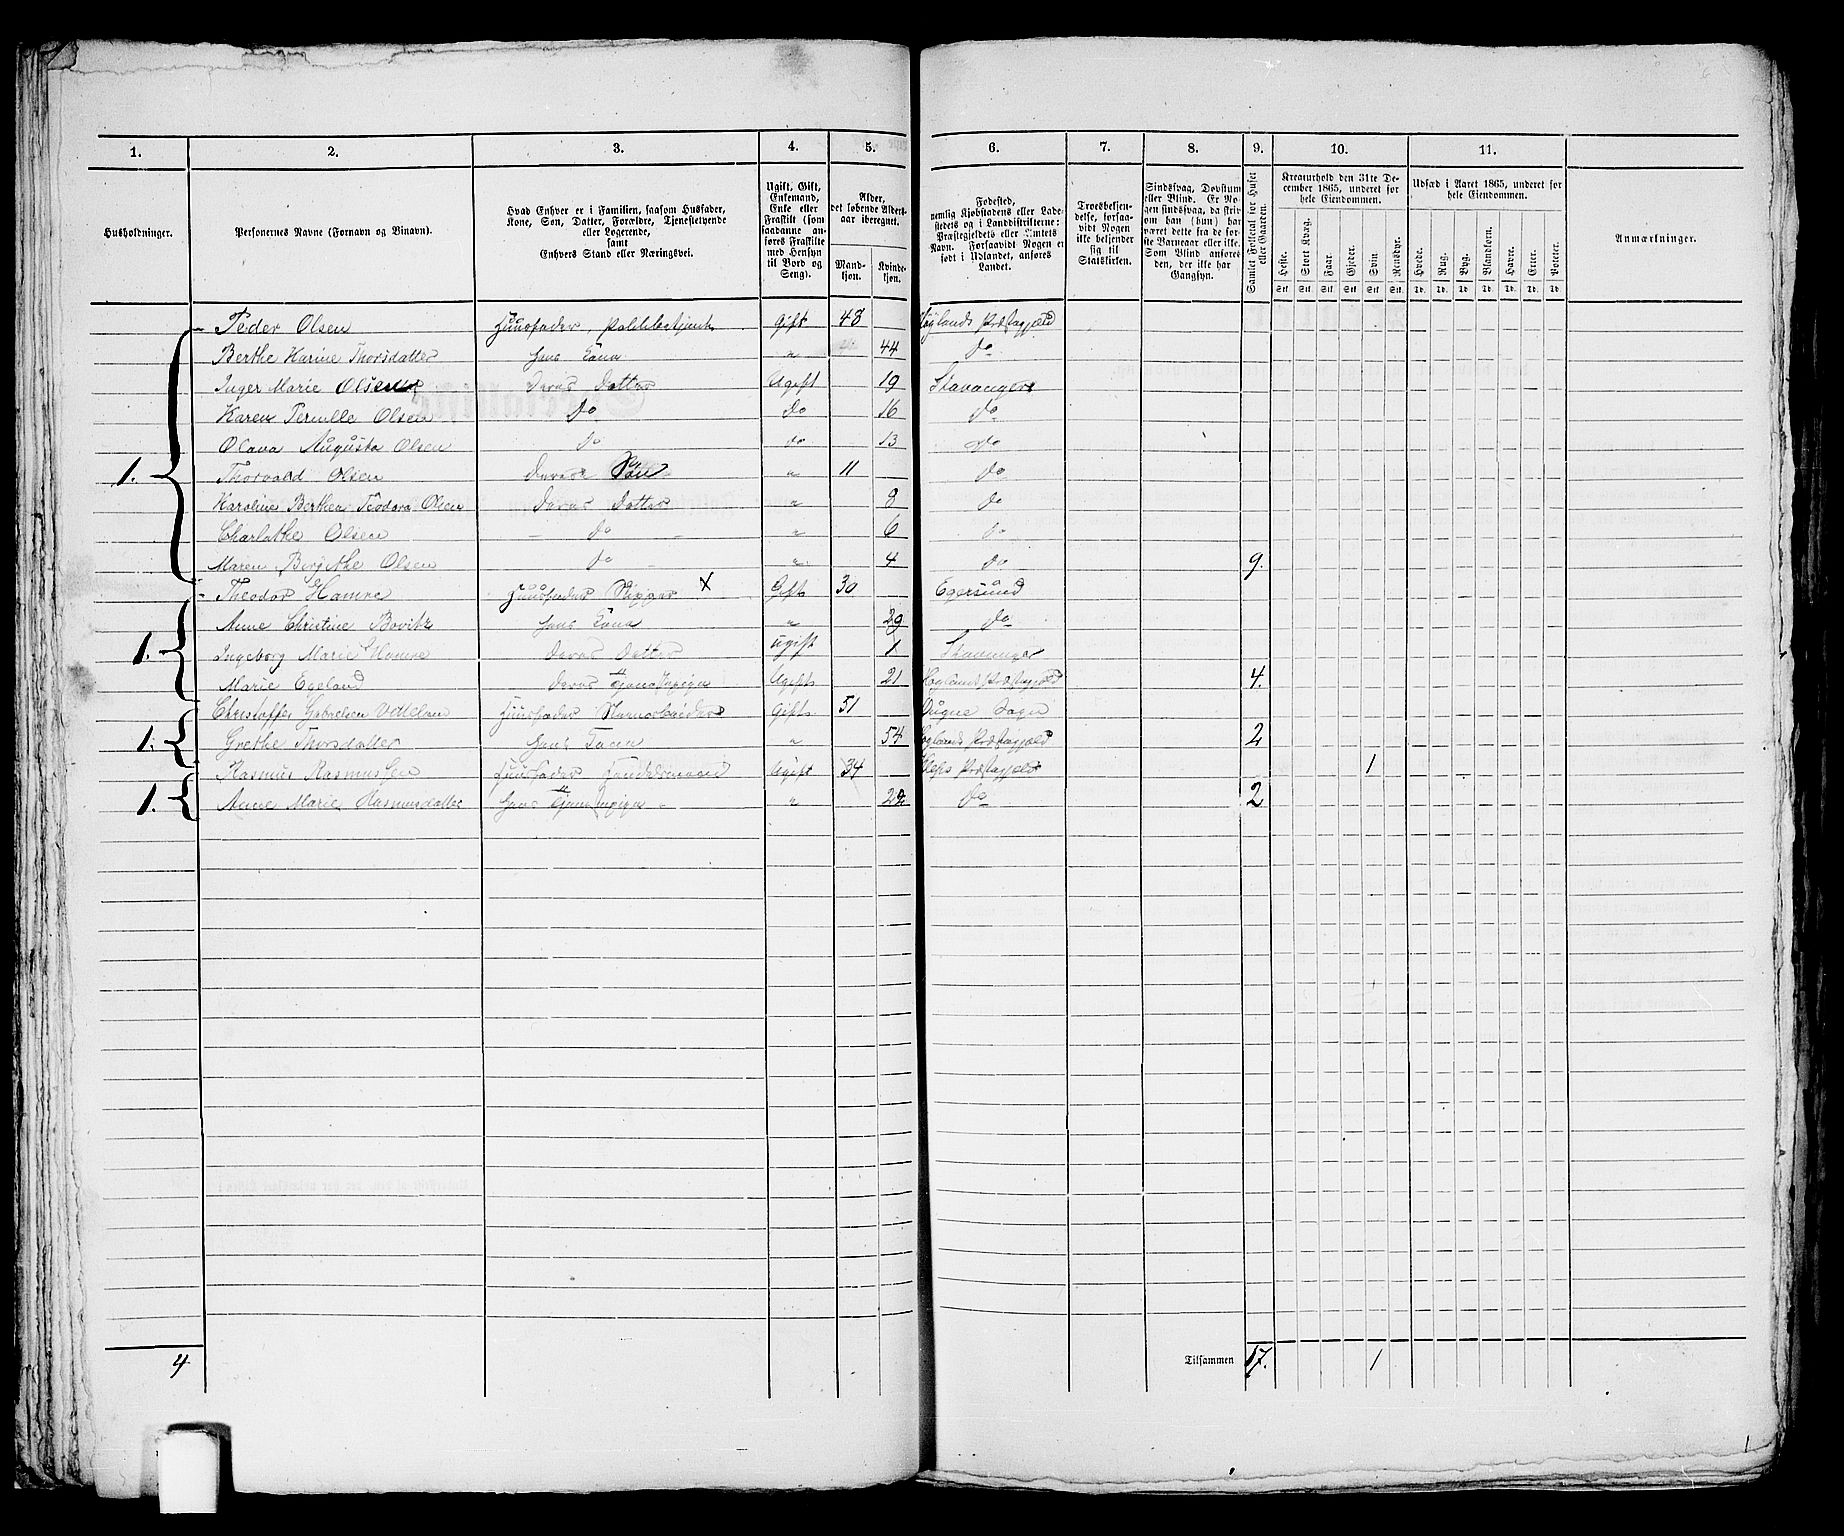 1. 2. 3. 4. 5. 6. 7. 8. 9. 10. 11.
Husholdninger.
Personernes Navne (Fornavn og Binavn).
Hvad Enhver er i Familien, saasom Husfader, Kone, Søn, Datter, Forældre, Tjenestetyende eller Logerende, samt Enhvers Stand eller Næringsvei.
Ugift, Gift, Enkemand, Enke eller Fraskilt (som saadanne anføres Fraskilte med Hensyn til Bord og Seng).
Alder, det løbende Aldersaar iberegnet.
Mandkjøn. Kvindekjøn.
Fødested, nemlig Kjøbstadens eller Ladestedets og i Landdistrikterne: Præstegjeldets eller Amtets Navn. Forsaavidt Nogen er født i Udlandet, anføres Landet.
Troesbekjendelse, forsaavidt Nogen ikke bekjender sig til Statskirken.
Sindssvag, Døvstum eller Blind. Er Nogen sindssvag, da skrives, om han (hun) har været dette fra de første Barneaar eller ikke. Som Blind anføres den, der ikke har Gangsyn.
Samlet Folketal for Huset eller Gaarden.
Kreaturhold den 31te December 1865, underet for hele Eiendommen.
Udsæd i Aaret 1865, underet for hele Eiendommen.
Anmærkninger.
Heste. Stort Kvæg. Faar. Gjeder. Svin. Rensdyr. Hvede. Rug. Byg. Blandkorn. Havre. Erter. Poteter.
Stk. Stk. Stk. Stk. Stk. Stk. Td. Td. Td. Td. Td. Td. Td.
Peder Olsen Huusfader, Gift 48 Høylands Præstegjæld
Berthe Karine Thorsdatter Hans Kona " 44 do
Inger Marie Olsen Deres Datter Ugift 19 Stavanger
Karen Pernille Olsen Do Do 16 do
Olava Augusta Olsen Do do 13 do
1. Thorvald Olsen Deres Søn " 11 do
Karoline Berthea Teodora Olsen Deres Datter " 8 do
Charlothe Olsen Do " 6 do
Maren Bergithe Olsen Do " 4 do 9.
Theodor Hamre Huusfader Skipper X Gift 30 Egersund
Anne Christine Hans Kona " 29 do
1. Ingeborg Marie Hamre Deres Datter ugift 1 Stavanger
Marie Egeland Deres Tjenestepige Ugift 21 Høylands Præstegjæld 4.
Christoffer Gabrielsen Huusfader Gift 51 Sogn
1. Grethe Thorsdatter Hans Kona " 54 Høylands Præstegjæld 2
Rasmus Rasmussen Huusfader Handelsmand Ugift 34 Kleps Præstegjæld 1
1. Anne Marie Rasmusdatter Hans Tjenestepige " 22 Do 2
4 Tilsammen 17. 1